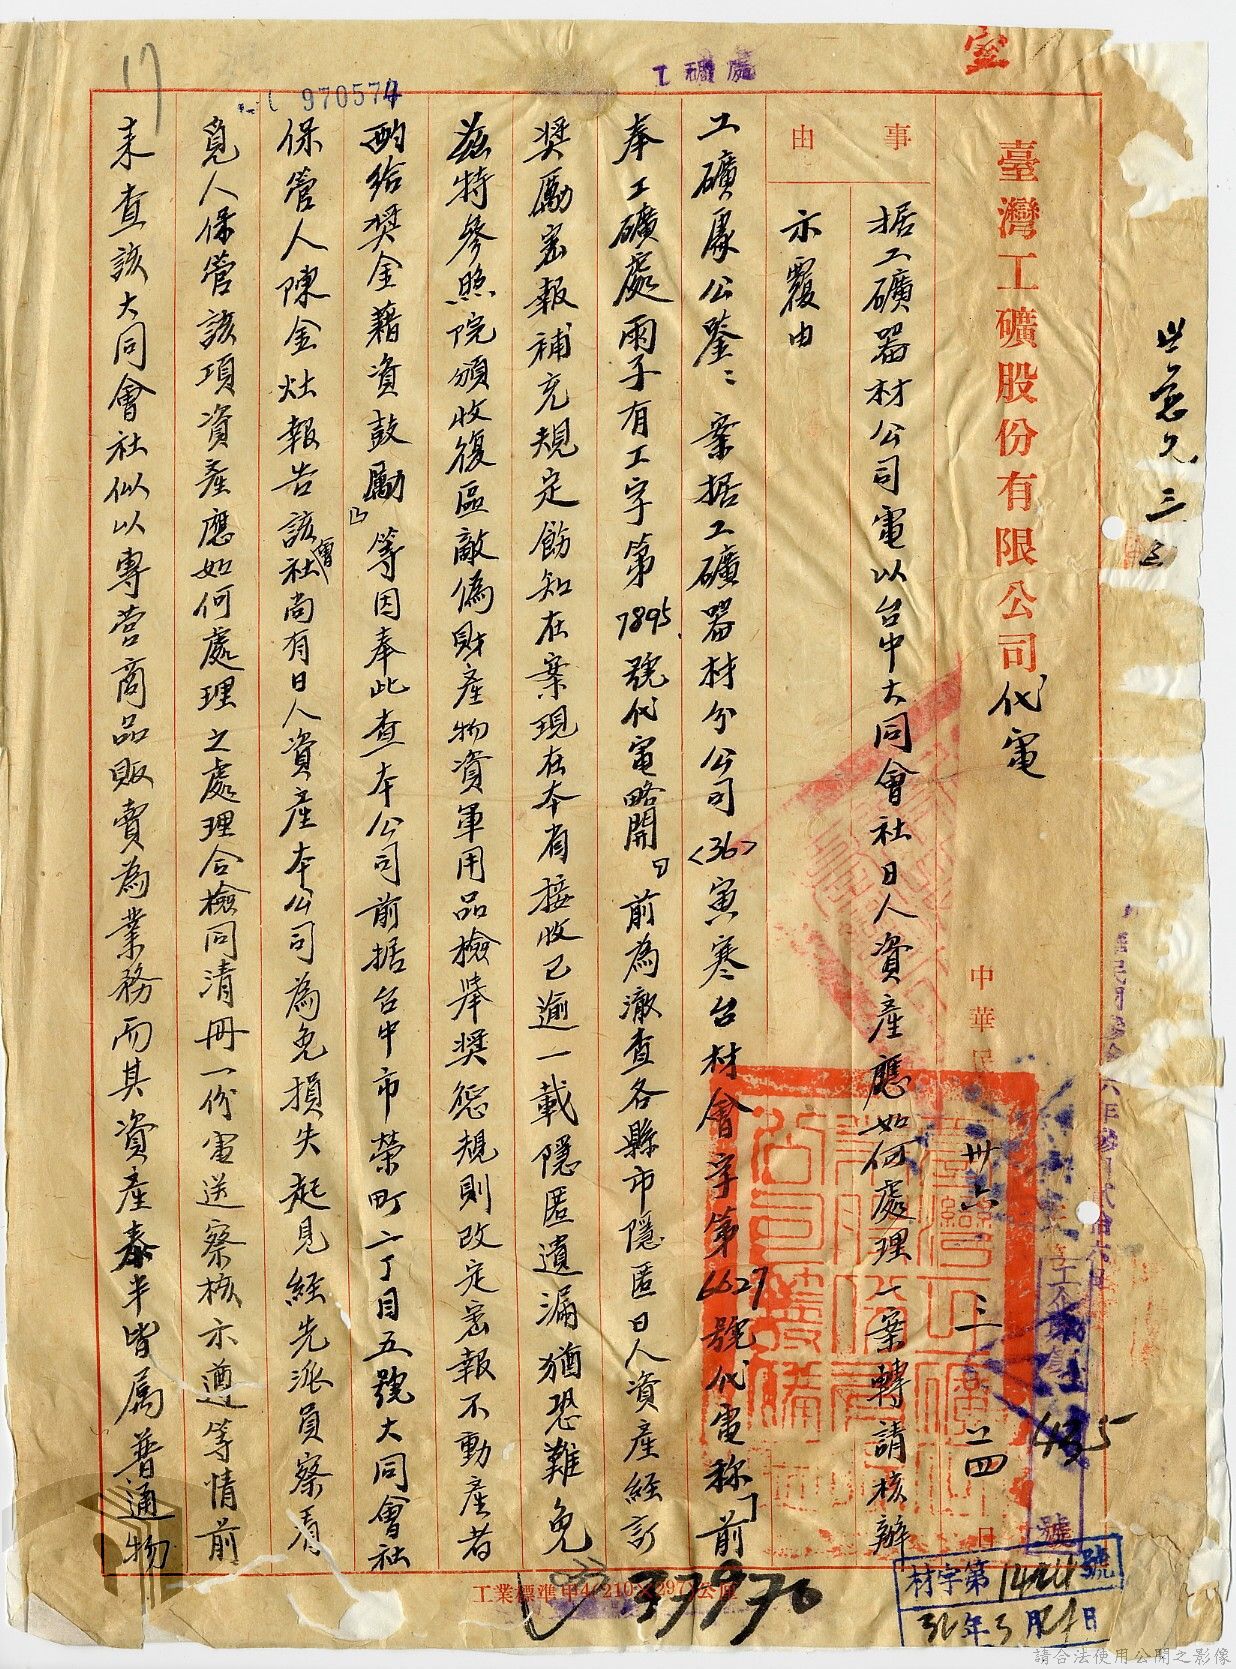 臺灣工礦股份有限公司代電
中華民
卅六
三
日
事由
据工礦器材公司電以台中大同會社日人資產應如何處理一案轉請核辦
示覆由
工礦處公鑒：案据工礦器材分公司<36>寅寒台材會字第6627號代電称「前
奉工礦處雨子有工字第7895號代電略開「前為澈查各縣市隱匿日人資產經訂
奬勵密報補充規定飭知在案現在本省接收已逾一載隱匿遺漏猶恐難免
茲特參照院頒收復區敵偽財產物資軍用品檢舉奬懲規則改定密報不動產者
酌给奬金藉資鼓勵」等因奉此查本公司前据台中市榮町二丁目五號大同會社
保管人陳金灶報告該會社尚有日人資產本公司為免損失起見經先派員察看
覓人保管該項資產應如何處理之處理合檢同清冊一份電送察核示遵等情前
来查該大同會社似以專营商品販賣為業務而其資產泰半皆属普通物
970574
工礦處
室
17
號
材字第1424號
年3月24日
37970
請合法使用公開之影像